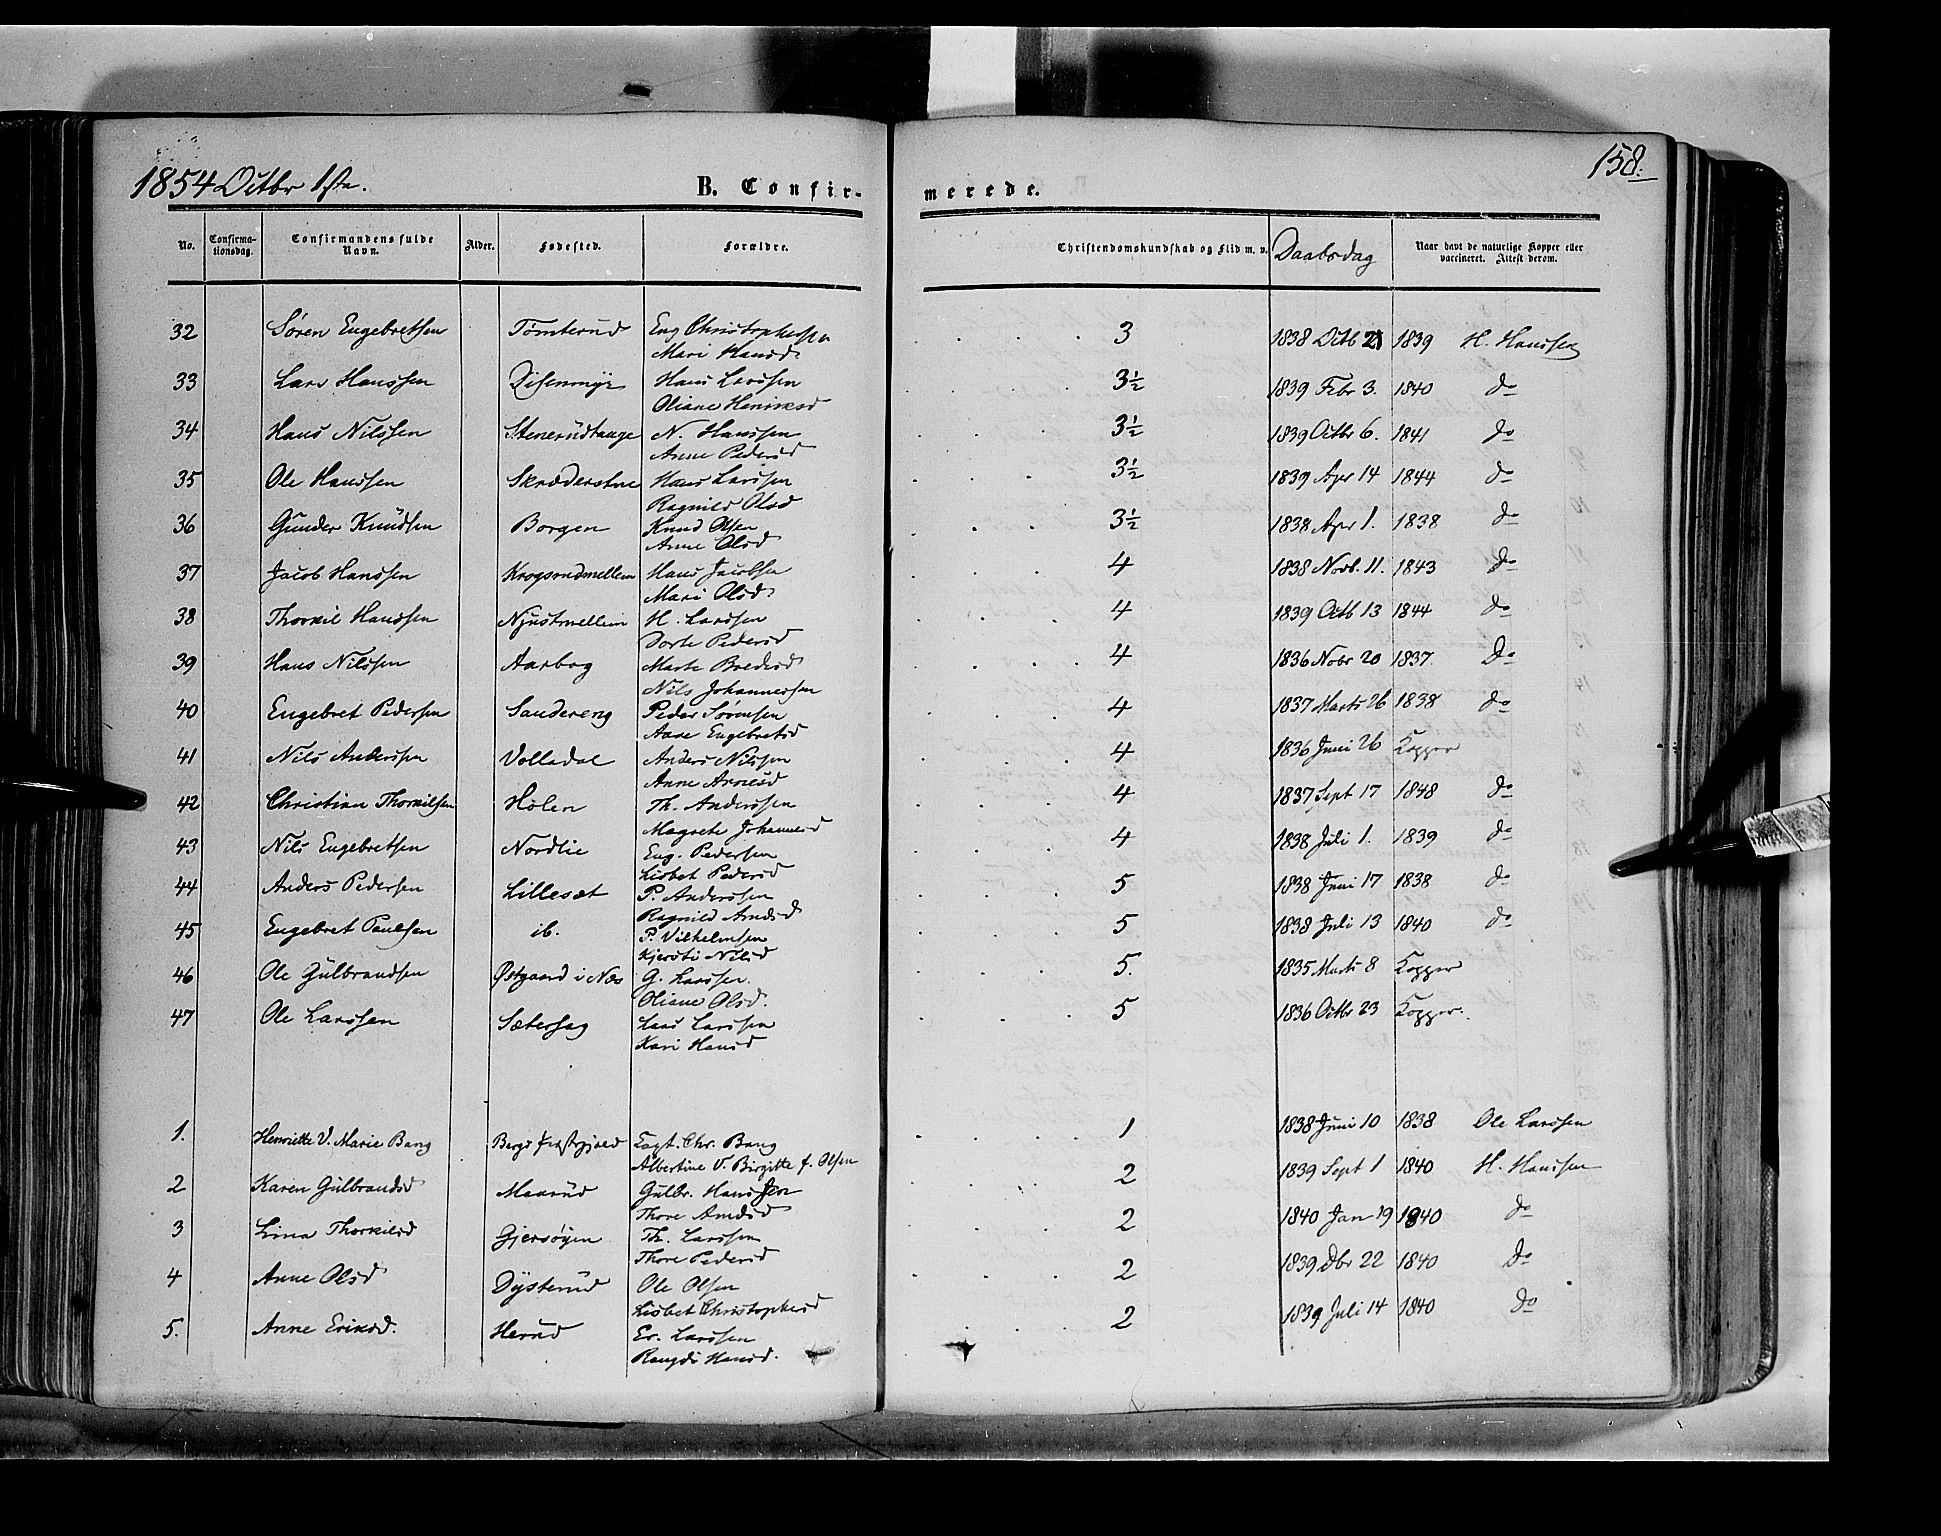 1854 Octbr 1ste. B. Confirmerede. 158.
No. Confirmationsdag. Confirmandens fulde Navn. Alder. Fødested. Forældre. Christendomskundskab og Flid m. v. Daabsdag Naar havt de naturlige Kopper eller vaccineret. Attest derom.
32 Søren Engebretsen Tømterud Eng Christophersen 3 1838 Octb 21 1839 H. Hanssen
Mari Hansd
33 Lars Hanssen Disenmyr Hans Larssen 3½ 1839 Febr 3. 1840 do
Oliane Henriksd
34 Hans Nilssen Stenerudtange N. Hanssen 3½ 1839 Octbr 6. 1841 do
Anne Pedersd
35 Ole Hanssen Skrædderstue Hans Larssen 3½ 1839 Apr 14 1844 do
Ragnild Olsd
36 Gunder Knudsen Borgen Knud Olsen 3½ 1838 Apr 1. 1838 do
Anne Olsd
37 Jacob Hanssen Krogsrudmellem Hans Jacobsen 4 1838 Novb. 11. 1843 do
Mari Olsd.
38 Thorkil Hanssen Njustmellem H. Larssen 4 1839 Octb 13 1844 do
Dorte Pedersd
39 Hans Nilssen Aarbog Marte Bredesd 4 1836 Nobr 20 1837. Do
Nils Johannessen
40 Engebret Pedersen Sandereng Peder Sørensen 4 1837 Marts 26 1838 do
Aase Engebretsd
41 Nils Anderssen Volladal Anders Nilssen 4 1836 Juni 26 Kopper
Anne Arnesd
42 Christian Thorkilsen Holen Th. Anderssen 4 1837 Sept 17 1848 do
Magrete Johannesd
43 Nils Engebretsen Nordlie Eng. Pedersen 4 1838 Juli 1. 1839 do
Lisbet Pedersd
44 Anders Pedersen Lillesæt P. Anderssen 5 1838 Juni 17 1838 do
Ragnild Arnesd
45 Engebret Paulsen ib. P. Vilhelmsen 5 1838 Juli 13 1840 do
Kjersti Nilsd
46 Ole Gulbrandsen Østgaard i Næs G. Larssen. 5. 1835 Marts 8 Kopper
Oliane Olsd.
47 Ole Larssen Sætersag Lars Larssen 5 1836 Octbr 23 Kopper.
Kari Hansd
1. Henriette V. Marie Bang Bergs Capt. Chr. Bang 1 1838 Juni 10 1838 Ole Larssen
Albertine V. Birgitte f. Olsen
2 Karen Gulbrandsd Maarud Gulbr. Hanssen 2 1839 Sept 1 1840 H. Hanssen
Thore Amdsd
3 Lina Thorkilsd Gjersøyen Th. Larssen 2 1840 Jan 19 1840 do
Thore Pedersd
4 Anne Olsd Dysterud Ole Olsen 2 1839 Dbr 22 1840 Do
Lisbet Christophersd
5. Anne Eriksd. Herud Er. Larssen 2 1839 Juli 14 1840 do
Rangdi Hansd.